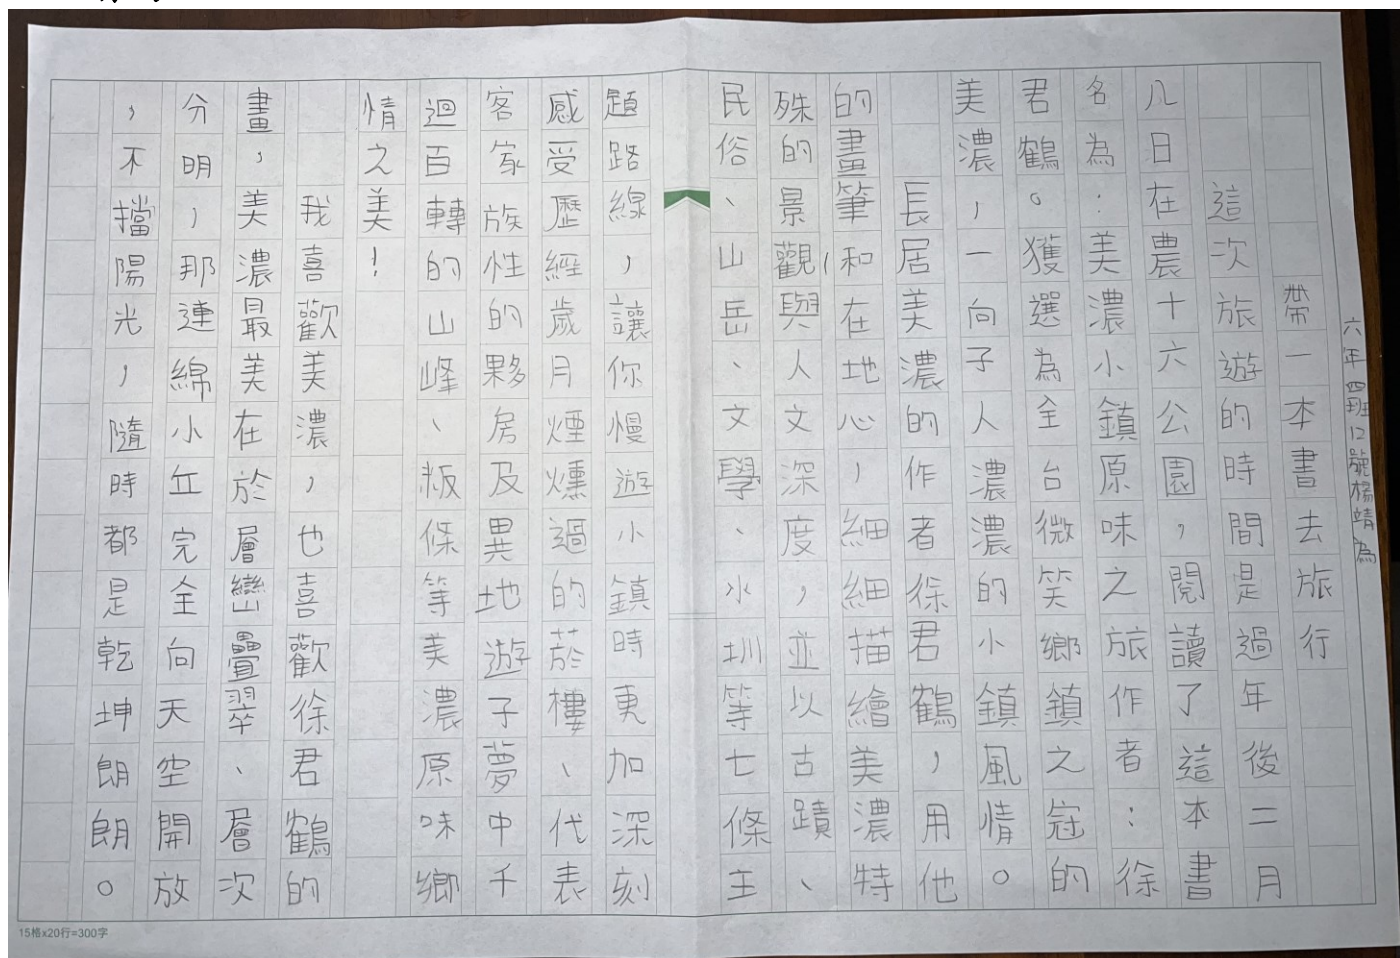 六年四班12號楊靖為
帶一本書去旅行
這次旅遊的時間是過年後二月
八日在農十六公園，閱讀了這本書
名為：美濃小鎮原味之旅作者：徐
君鶴。獲選為全台微笑鄉鎮之冠的
美濃，一向予人濃濃的小鎮風情。
長居美濃的作者徐君鶴，用他
的畫筆和在地心，細細描繪美濃特
殊的景觀，與人文深度，並以古蹟、
民俗、山岳、文學、水圳等七條主
題路線，讓你慢遊小鎮時更加深刻
感受歷經歲月煙燻過的菸樓、代表
客家族性的夥房及異地遊子夢中千
迴百轉的山峰、粄條等美濃原味鄉
情之美！
我喜歡美濃，也喜歡徐君鶴的
畫，美濃最美在於層巒疊翠、層次
分明，那連綿小丘完全向天空開放
，不擋陽光，隨時都是乾坤朗朗。
15格x20行=300字